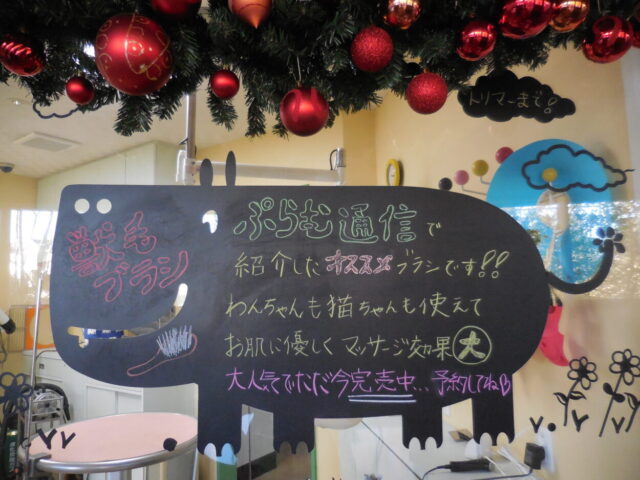 トリマーまで!
獣毛
ブラシ
ぷらむ通信で
紹介したオススメブラシです!!
わんちゃんも猫ちゃんも使えて
お肌に優しくマッサージ効果大
大人気でただ今完売中…予約してね♡